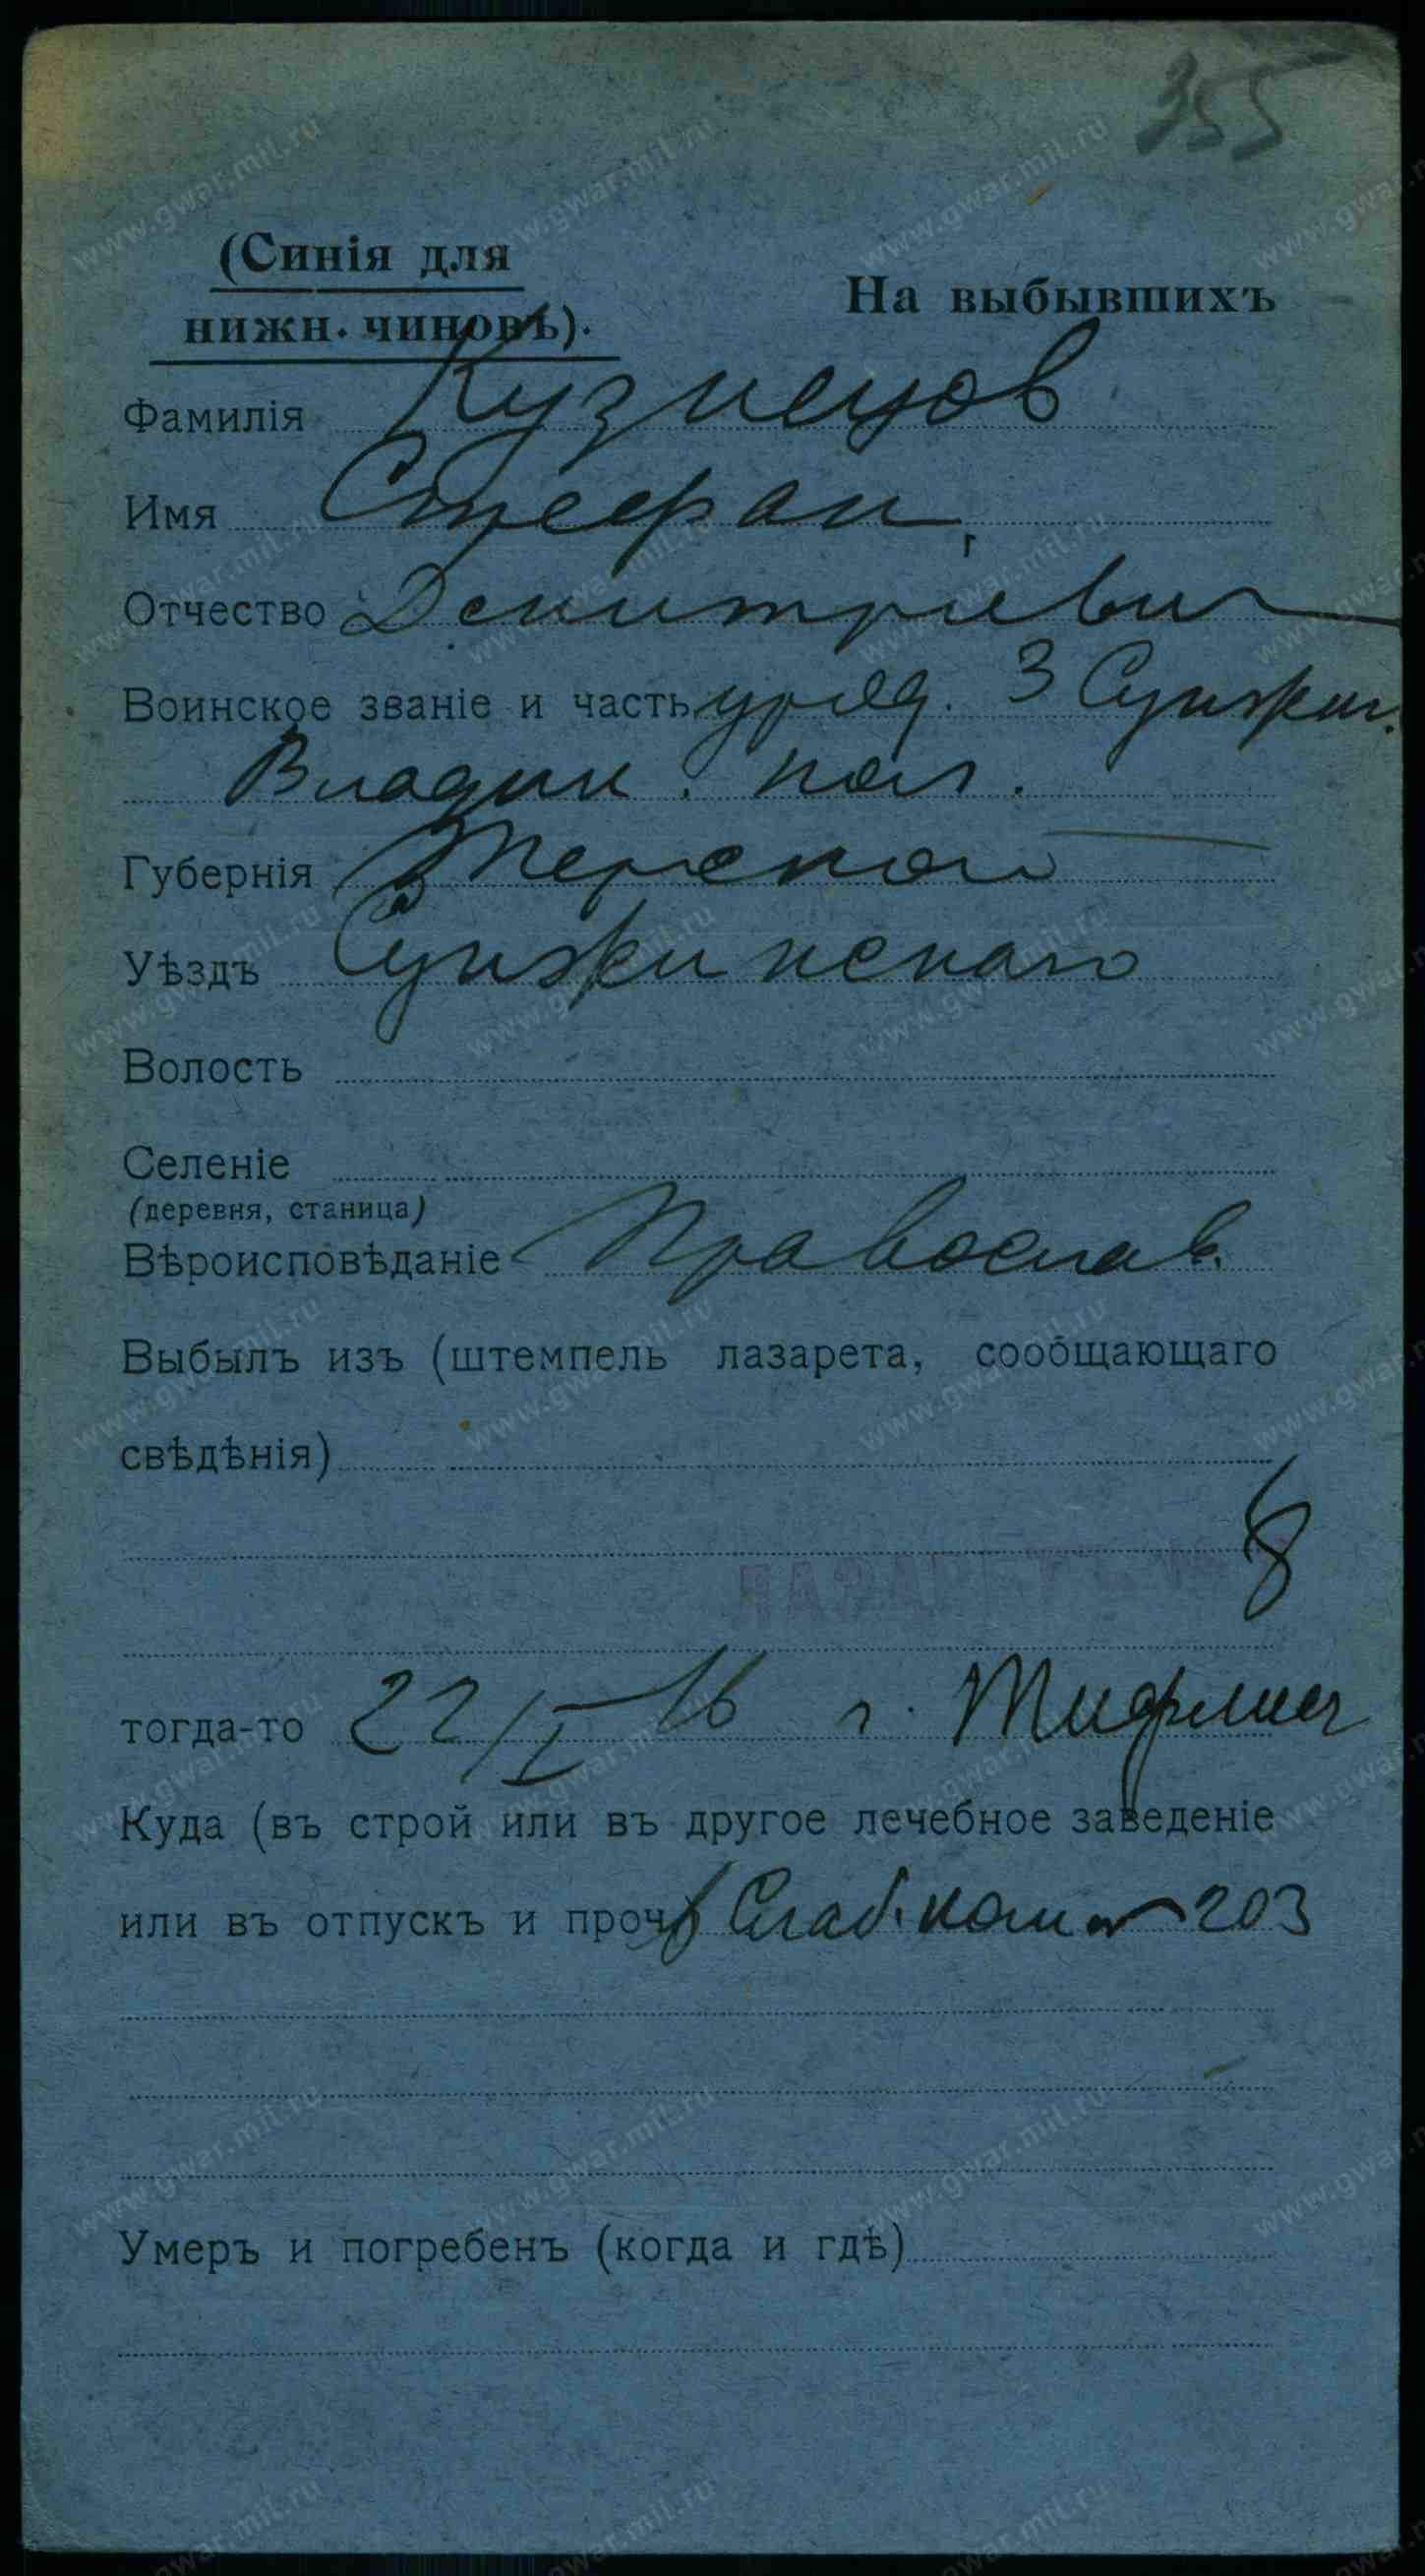 355
(Синія для
нижн. чиновъ).
На выбывшихъ
Фамилія Кузнецов
Имя Стефан
Отчество Демитриевич
Воинское званіе и часть уряд. 3 Сунжен.
Владик. пол.
Губернія Терской
Уѣздъ Сунжинскаго
Волость
Селеніе
(деревня, станица)
Вѣроисповѣданіе Православ.
Выбылъ изъ (штемпель лазарета, сообщающаго
свѣдѣнія)
ЛАЗАРЕТЪ № 8
тогда-то 22/I 16 г. Тифлис
Куда (въ строй или въ другое лечебное заведеніе
или въ отпускъ и проч. в Слаб. ком № 203
Умеръ и погребенъ (когда и гдѣ)
www.gwar.mil.ru